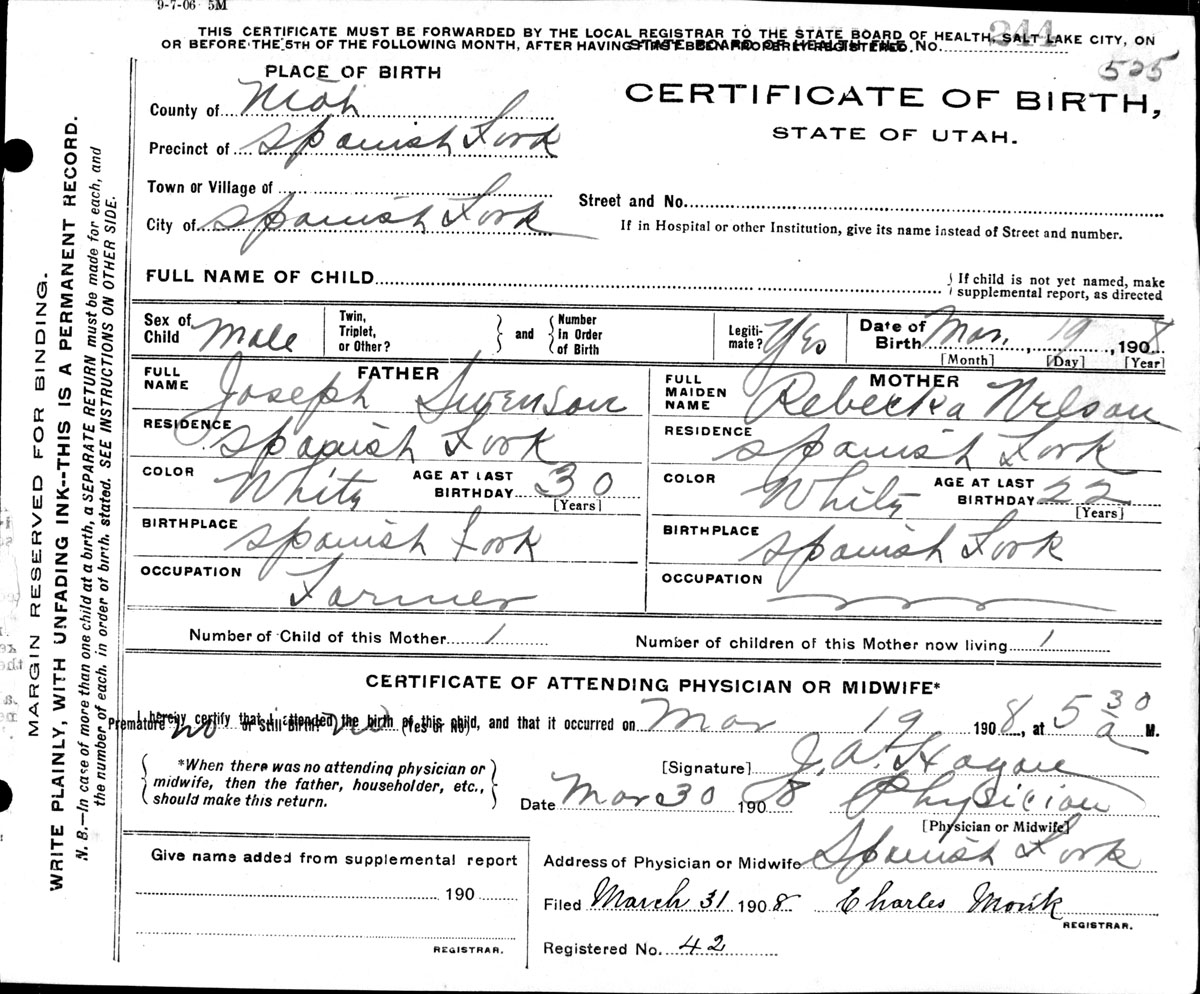 9-7-06 5M
THIS CERTIFICATE MUST BE FORWARDED BY THE LOCAL REGISTRAR TO THE STATE BOARD OF HEALTH, SALT LAKE CITY, ON
OR BEFORE THE 5TH OF THE FOLLOWING MONTH, AFTER HAVING
STATE BOARD OF HEALTH FILE No. 344
525
PLACE OF BIRTH
County of Utah
Precinct of Spanish Fork
Town or Village of
City of Spanish Fork
CERTIFICATE OF BIRTH,
STATE OF UTAH.
Street and No.
If in Hospital or other Institution, give its name instead of Street and number.
FULL NAME OF CHILD
If child is not yet named, make
supplemental report, as directed
Sex of Child Male
Twin, Triplet, or Other? and Number In Order of Birth
Legiti-mate? Yes
Date of Birth Mar. 19, 1908
[Month] [Day] [Year]
FATHER
FULL NAME Joseph Swenson
RESIDENCE Spanish Fork
COLOR White AGE AT LAST BIRTHDAY 30
[Years]
BIRTHPLACE Spanish Fork
OCCUPATION Farmer
MOTHER
FULL MAIDEN NAME Rebecka Nelson
RESIDENCE Spanish Fork
COLOR White AGE AT LAST BIRTHDAY 22
[Years]
BIRTHPLACE Spanish Fork
OCCUPATION
Number of Child of this Mother 1 Number of children of this Mother now living 1
CERTIFICATE OF ATTENDING PHYSICIAN OR MIDWIFE*
I hereby certify that I attended the birth of this child, and that it occurred on Mar 19 1908, at 5 30 a M.
Premature No or Still Birth? No (Yes or No)
*When there was no attending physician or
midwife, then the father, householder, etc.,
should make this return.
[Signature] J. A. Hagan
Date Mar 30 1908 Physician
[Physician or Midwife]
Address of Physician or Midwife Spanish Fork
Give name added from supplemental report
190
REGISTRAR.
Filed March 31 1908 Charles Monk
REGISTRAR.
Registered No. 42
MARGIN RESERVED FOR BINDING.
WRITE PLAINLY, WITH UNFADING INK--THIS IS A PERMANENT RECORD.
N. B.—In case of more than one child at a birth, a SEPARATE RETURN must be made for each, and
the number of each, in order of birth, stated. SEE INSTRUCTIONS ON OTHER SIDE.